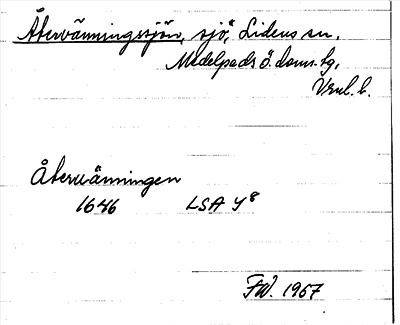 Återvänningssjön, sjö, Lidens sn,
Medelpads ö. doms. hg,
Vrnl. l.
Återvänningen
1646 LSA Y8
FW. 1967